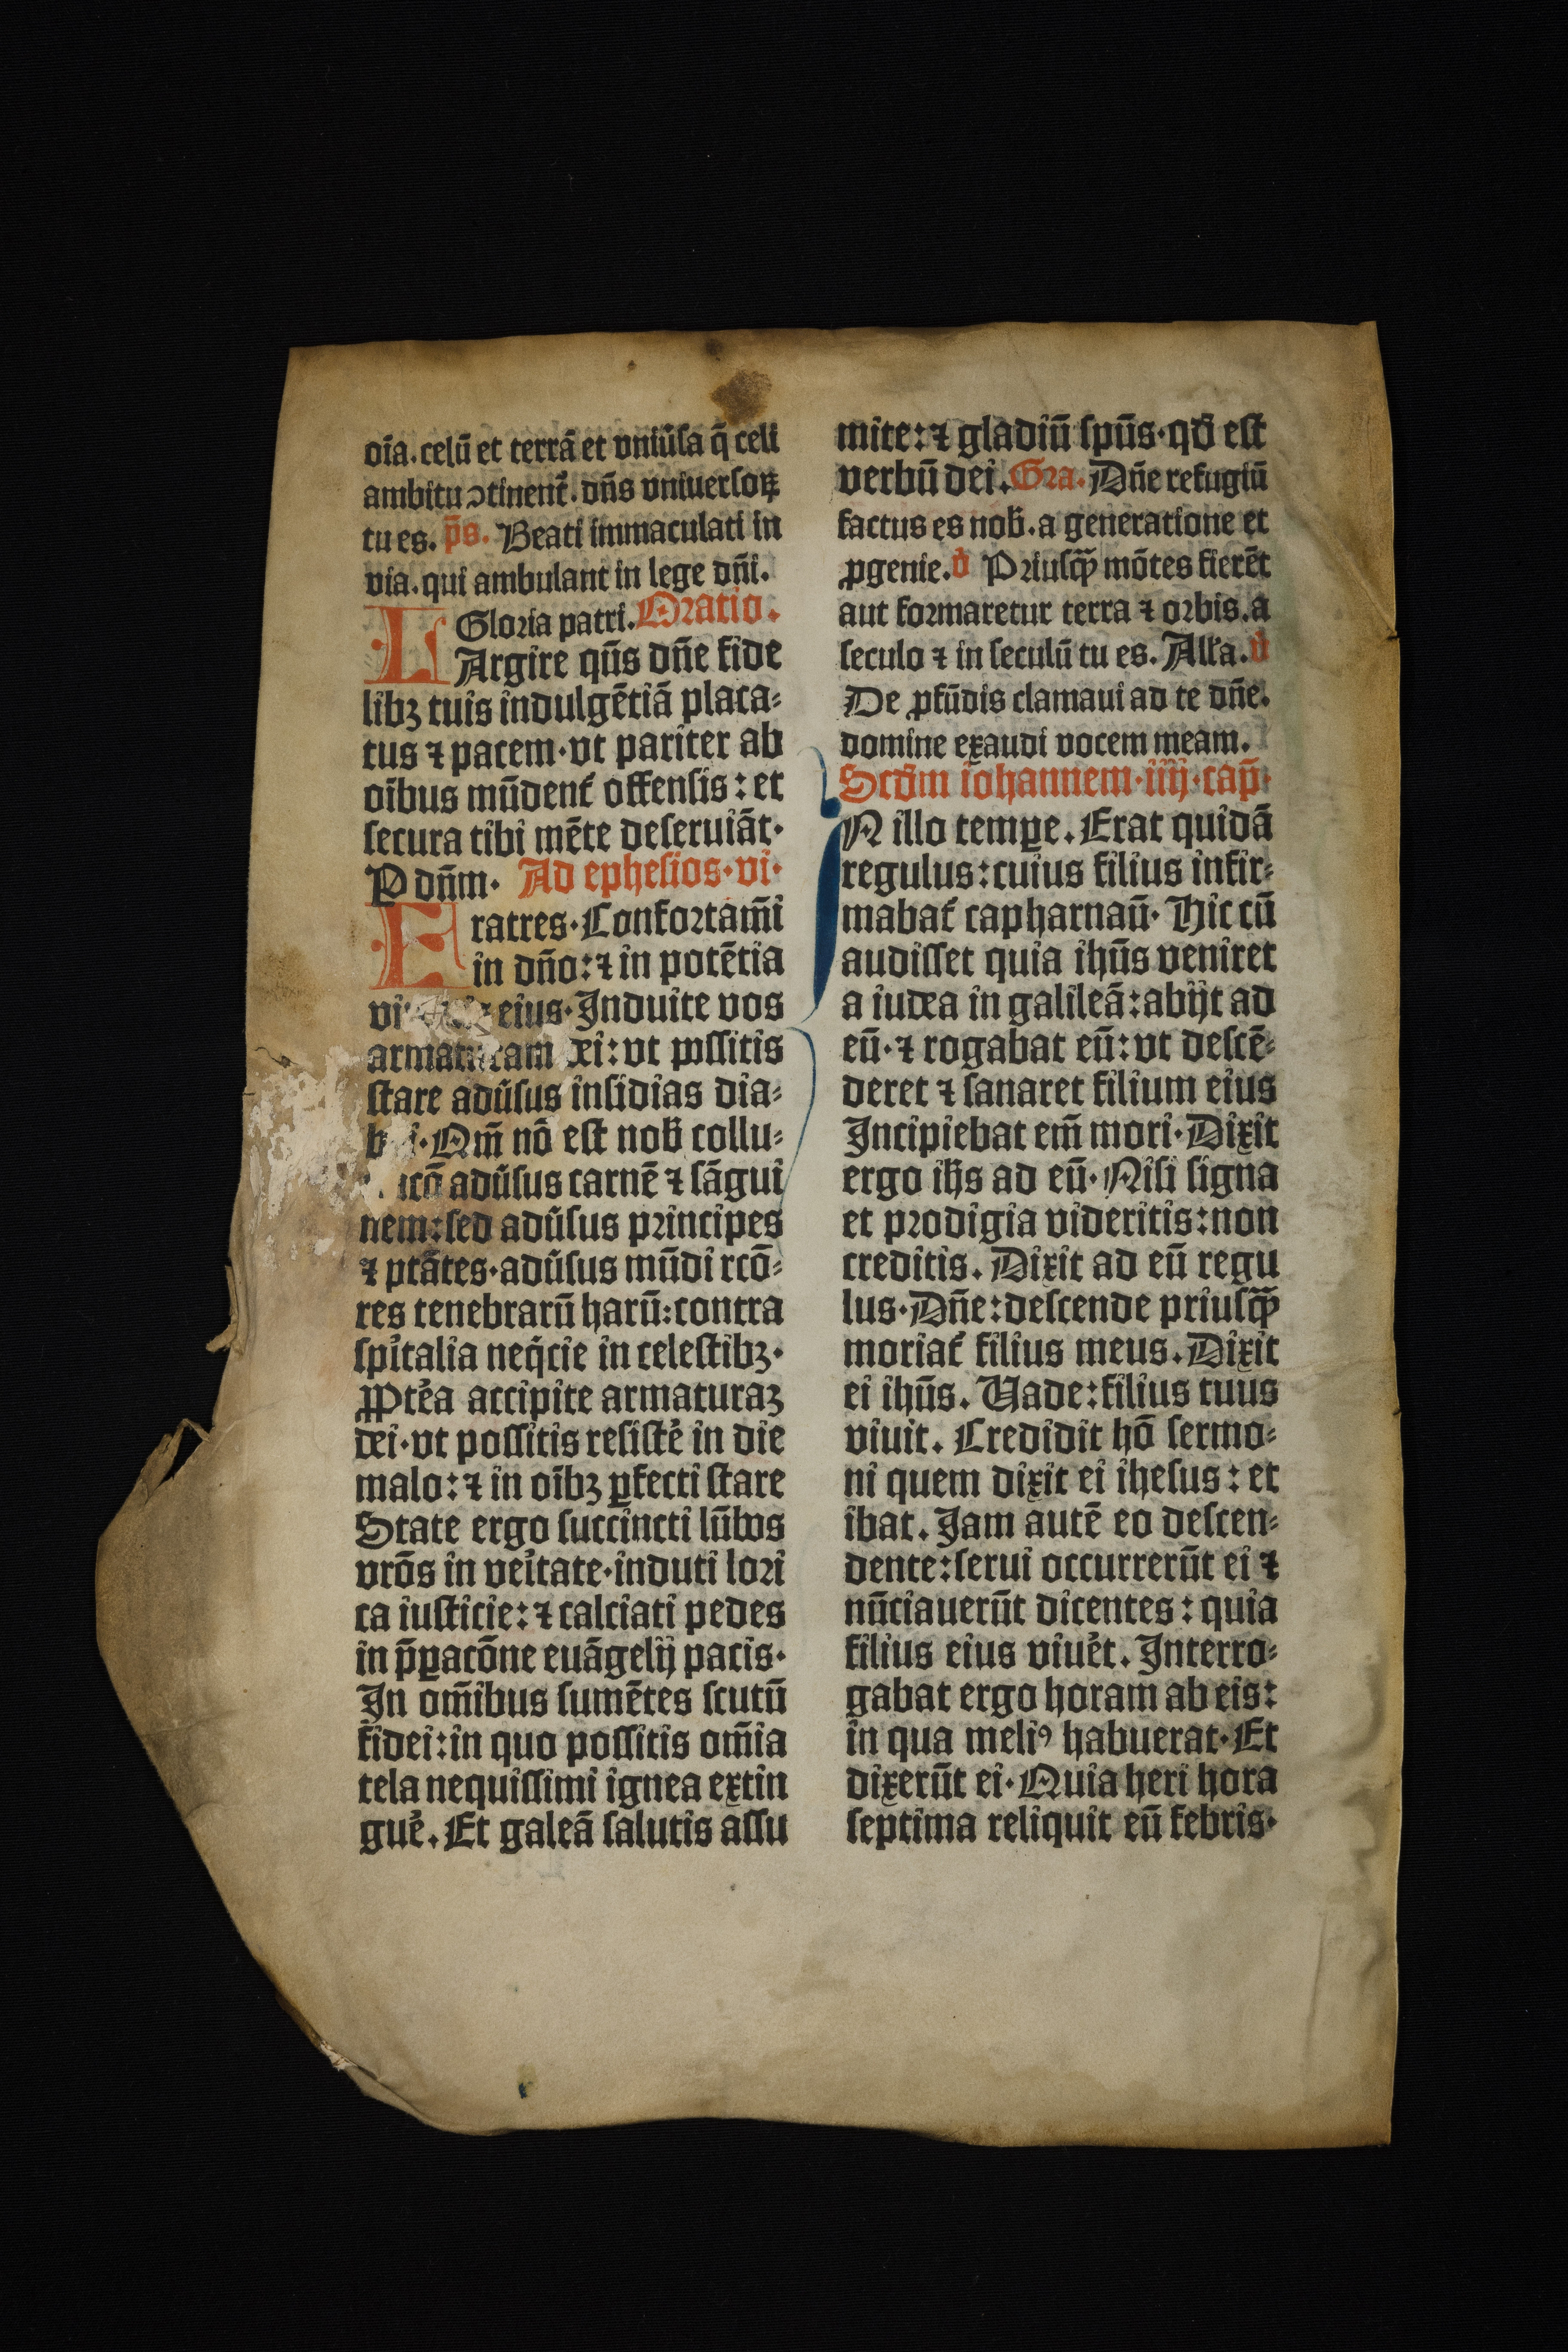 oīa. celū et terrā et vniūſa q̄ celi
ambitu ↄtinent᷑. dn̄s vniuerſoꝝ
tu es. p̄s. Beati immaculati in
via. qui ambulant in lege dn̄i.
Gloria patri. Oratio.
LArgire qn̄s dn̄e fide
libꝫ tuis indulgētiā placa⸗
tus ⁊ pacem·vt pariter ab
oībus mūdent᷑ offenſis: et
ſecura tibi mēte deſeruiāt·
P dn̄m· Ad epheſios·vi·
Fratres·Confortam̄i
in dn̄o:⁊ in potētia
eius·Induite vos
armaturam dei:vt poſſitis
ſtare adūſus inſidias dia⸗
Qm̄ nō eſt nob̄ collu⸗
adūſus carnē ⁊ ſāgui
nem:ſed adūſus principes
⁊ ptātes·adūſus mūdi rcō⸗
res tenebrarū harū:contra
ſpi᷑talia neq̇cie in celeſtibꝫ·
Ꝓpte᷑a accipite armaturaꝫ
dei·vt poſſitis reſiſte᷑ in die
malo:⁊ in oībꝫ ꝑfecti ſtare
State ergo ſuccincti lūbos
vrōs in vei᷑tate·induti lori
ca iuſticie:⁊ calciati pedes
in p̄ꝑacōne euāgelij pacis·
In om̄ibus ſumētes ſcutū
fidei:in quo poſſitis om̄ia
tela nequiſſimi ignea extin
gue᷑. Et galeā ſalutis aſſu
mite:⁊ gladiū ſpūs·qđ eſt
verbū dei. Gra. Dn̄e refugiū
factus es nob̄. a generatione et
ꝓgenie. v̓ Priuſꝙ̄ mōtes fierēt
aut formaretur terra ⁊ orbis. a
ſeculo ⁊ in ſeculū tu es. All᷑a. v̓
De ꝓfūdis clamaui ad te dn̄e.
domine exaudi vocem meam.
Scđm iohannem·iiij·cap̄·
IN illo temꝑe. Erat quidā
regulus:cuius filius infir⸗
mabat᷑ capharnaū· Hic cū
audiſſet quia ihūs veniret
a iudea in galileā:abijt ad
eū·⁊ rogabat eū:vt deſcē⸗
deret ⁊ ſanaret filium eius
Incipiebat em̄ mori·Dixit
ergo ih̄s ad eū·Niſi ſigna
et prodigia videritis:non
creditis. Dixit ad eū regu
lus·Dn̄e:deſcende priuſꝙ̄
moriat᷑ filius meus. Dixit
ei ihūs. Vade:filius tuus
viuit. Credidit hō ſermo⸗
ni quem dixit ei iheſus: et
ibat. Jam autē eo deſcen⸗
dente:ſerui occurrerūt ei ⁊
nūciauerūt dicentes: quia
filius eius viue᷑t. Interro⸗
gabat ergo horam ab eis:
in qua meliꝰ habuerat·Et
dixerūt ei·Quia heri hora
ſeptima reliquit eū febris·